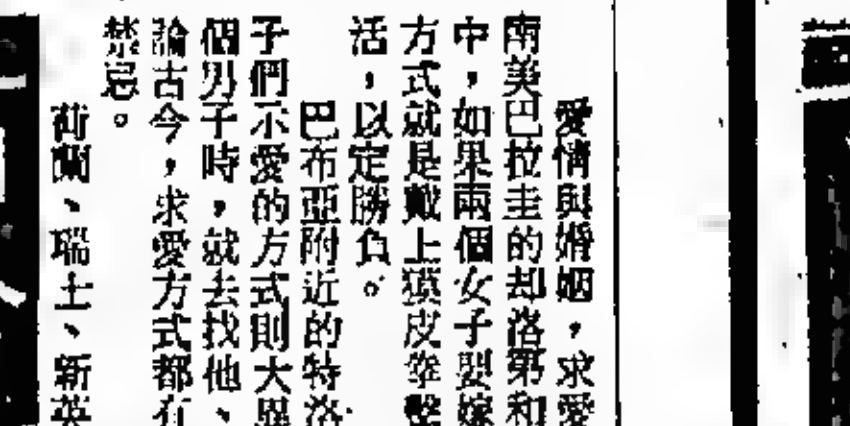 愛情與婚姻，求愛
南美巴拉圭的却洛第和
中，如果兩個女子要嫁
方式就是戴上獏皮拳擊
活，以定勝負。
巴布亞附近的特洛
子們示愛的方式則大異
個男子時，就去找他、
論古今，求愛方式都有
禁忌。
荷蘭、瑞士、新英